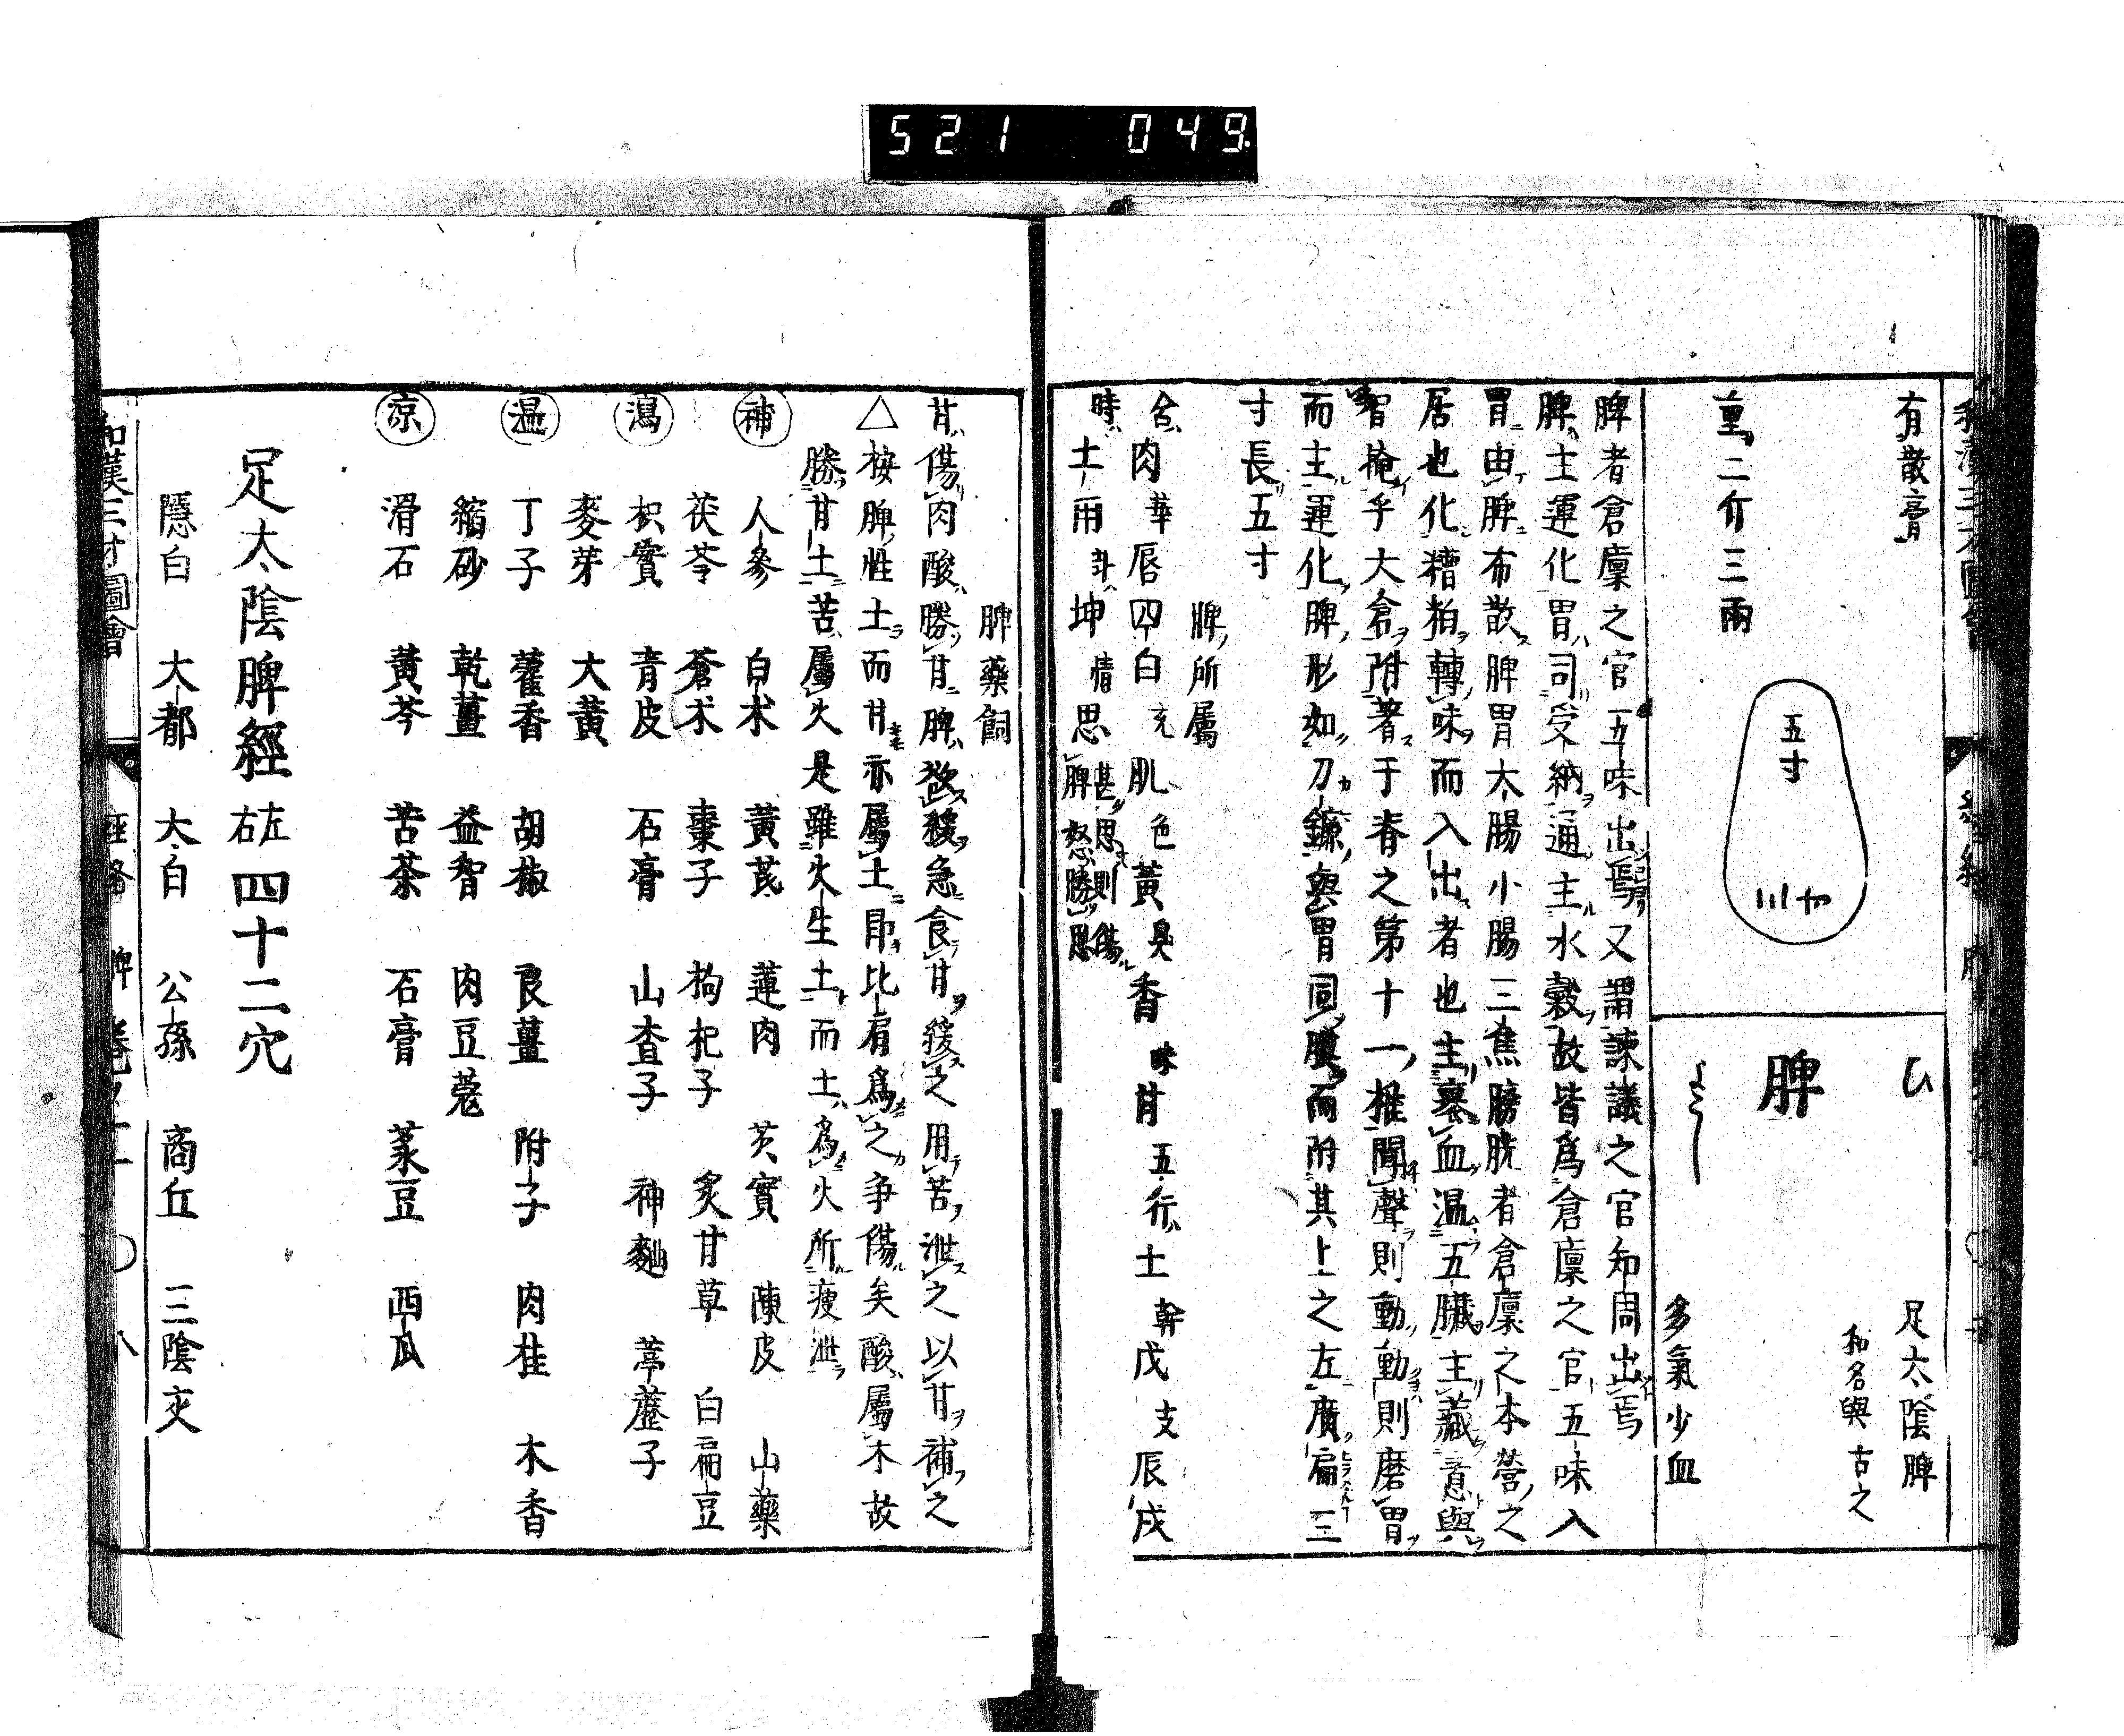 521 049
有散膏
重二斤三兩
五寸
三寸
ひ
脾
よこし
足太陰脾
和名與古之
多氣少血
脾者倉廩之官五味出焉又謂諫議之官知周出焉
脾主運化胃司受納通主水穀故皆爲倉廩之官五味入
胃由脾布散脾胃大腸小腸三焦膀胱者倉廩之本營之
居也化糟粕轉味而入出者也主裹血温五臓主藏意與
智掩乎大倉附著于脊之第十一椎聞聲則動動則磨胃
而主運化脾形如刀鎌與胃同膜而附其上之左廣扁三
寸長五寸
脾所屬
合肉 華唇四白 充肌 色黃 臭香 味甘 五行土 幹戊 支辰戌
時土用 卦坤 情思 甚思則傷脾怒勝思
脾藥飼
甘傷肉酸勝甘脾欲緩急食甘緩之用苦泄之以甘補之
△按脾性土而甘亦屬土即比肩爲之争傷矣酸屬木故
勝甘土苦屬火是雖火生土而土爲火所瘦泄
補 人參 白朮 黃芪 蓮肉 芡實 陳皮 山藥
茯苓 蒼朮 棗子 枸杞子 炙甘草 白扁豆
瀉 枳實 青皮 石膏 山査子 神麹 葶藶子
麥芽 大黃
温 丁子 藿香 胡椒 良薑 附子 肉桂 木香
縮砂 乾薑 益智 肉豆蔻
涼 滑石 黃芩 苦茶 石膏 菉豆 西瓜
足太陰脾經左右四十二穴
隱白 大都 太白 公孫 商丘 三陰交
和漢三才圖會 經絡 脾 卷之十一 〇八